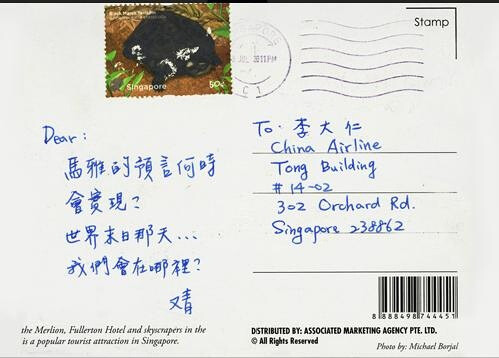 Black Marsh Terrapin
Singapore
50c
C 1
Stamp
Dear :
馬雅的預言何時
會實現?
世界末日那天...
我們會在哪裡?
又青
To. 李大仁
China Airline
Tong Building
#14-02
302 Orchard Rd.
Singapore 238862
the Merlion, Fullerton Hotel and skyscrapers in the
is a popular tourist attraction in Singapore.
8 888498 744451
DISTRIBUTED BY: ASSOCIATED MARKETING AGENCY PTE. LTD.
© All Rights Reserved
Photo by: Michael Borjal